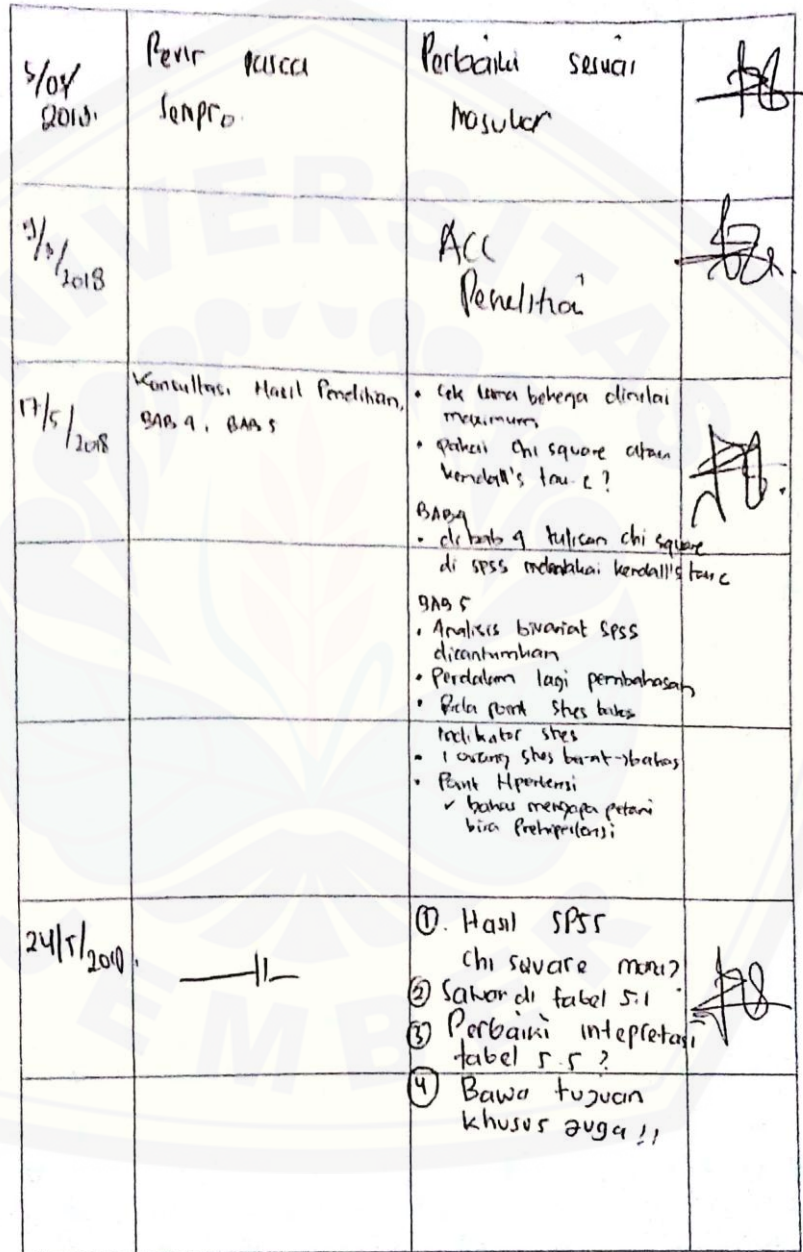 Revisi pasca
Sempro.
Perbaiki sesuai
masukan
2018
ACC
Penelitian
17/5/2018
Konsultasi Hasil Penelitian,
BAB 4, BAB 5
• Cek lama bekerja dinilai
maximum
• pakai chi square atau
kendall's tau c?
BAB 4
• di bab 4 tulisan chi square
di SPSS memakai kendall's tau c
BAB 5
• Analisis bivariat SPSS
dicantumkan
• Perdalam lagi pembahasan
• Pada point stres bahas
indikator stres
• 1 orang stres berat → bahas
• Point Hipertensi
✓ bahas mengapa petani
bisa Prehipertensi
24/5/2018.
①. Hasil SPSS
chi square mana?
② di tabel 5.1
③ Perbaiki intepretasi
tabel 5.5 ?
④ Bawa tujuan
khusus juga !!
UNIVERSITAS
JEMBER